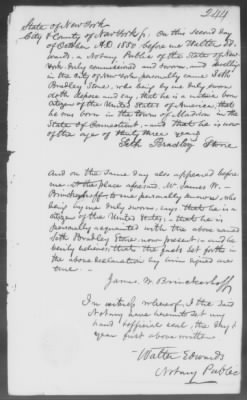 244
State of New York
City & County of New York ss. On this second day
of October A.D. 1850 before me Walter Ed-
wards, a Notary Public of the State of New
York duly commissioned and sworn and dwelling
in the City of New York personally came Seth
Bradley Stone, who being by me duly sworn
doth depose and say, that he is a native born
Citizen of the United States of America, that
he was born in the town of Madison in the
State of Connecticut, and that he is now
of the age of thirty three years
Seth Bradley Stone
And on the same day also appeared before
me at the place aforesaid Mr James W.
Brinckerhoff, to me personally known, who
being by me duly sworn, says that he is a
citizen of the United States, that he is
personally acquainted with the above named
Seth Bradley Stone now present, and he
verily believes that the facts set forth in
the above declaration by him signed are
true
James W. Brinckerhoff
In witness whereof, I the said
Notary have hereunto set my
hand & official seal, the day &
year first above written
Walter Edwards
Notary Public